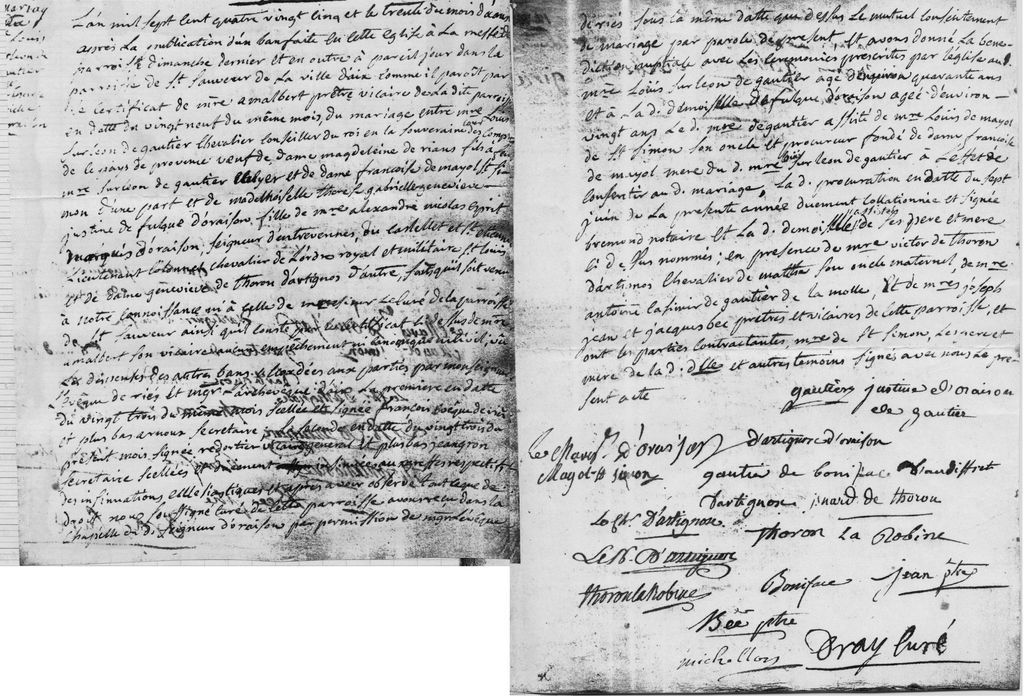 L'an mil sept cent quatre vingt cinq et le trente du mois d'aous
après la publication d'un ban faite en cette eglise à la messe de
parroisse dimanche dernier et en outre a pareil jour dans la
parroisse de st sauveur de la ville d'aix comme il paroit par
le certificat de mre amalbert prêtre vicaire de la dit parroisse
en datte du vingt neuf du même mois, du mariage entre mre louis
surleon de gautier chevalier conseiller du roi en la souveraine cour des comptes
de ce pays de provence veuf de dame magdeleine de rians fils à feu
mre surléon de gautier et de dame francoise de mayol st si
mon d'une part et de mademoiselle therese gabrielle genevieve
justine de fulque d'oraison fille de mre alexandre nicolas esprit
marquis d'oraison, seigneur d'entrevennes, ou castellet et st
lieutenant Colonnel chevalier de l'ordre royal et militaire st louis,
et de dame genevieve de thoron d'artignos d'autre, sans qu'il soit venu
à notre connoissance ni à celle de messieur le curé de la parroisse
de st sauveur ainsi qu'il conste par le certificat ci dessus de mre
amalbert son vicaire aucun empechement ni canonique ni civil, vu
les dispenses des autres bans accordées aux parties par monseigneur
l'évêque de riés et mgr l'archeveque d'aix la premiere en datte
du vingt trois du mois scellée et signée françois évêque de riés
et plus bas arnoux secretaire la seconde en datte du vingt trois du
présent mois signée redortier vicaire general et plus bas jeangron
secretaire scellées et duement insinuées au greffes respectif
des insinuations ecclesiastiques et apres avoir observé tout ce que de
droit nous soussigné curé de cette parroisse avons recu dans la
chapelle de d. seigneur d'oraison par permission de mgr l'évêque
de riés sous la même datte que dessus le mutuel consentement
de mariage par parole de present, et avons donné la bene
diction nuptiale avec les ceremonies prescrites par l'église aud.
mre Louis surleon de gautier agé d'environ quarante ans
et à la d. demoiselle de fulque d'oraison agée d'environ
vingt ans le d. mre de gautier assisté de mre louis de mayol
de st simon son oncle et procureur fondé de dame francoise
de mayol mere du d. mre louis surleon de gautier à l'effet de
consentir au d. mariage, la d. procuration en datte du sept
juin de la presente année duement collationnée et signée
bremond notaire et la d. demoiselle assistée de ses pere et mere
ci dessus nommés; en presence de mre victor de thoron
d'artinos chevalier de malthe son oncle maternel, de mre
antoine casimir de gautier de la molle, et de mres joseph
jean et jacques bec prêtres et vicaires de cette parroisse, et
ont les parties contractantes, mre de st simon, les pere et
mere de la d. dlle et autres temoins signés avec nous le pre
sent acte
gautier justine d'oraison
de gautier
le Marqs d'oraison d'artignose d'oraison
Mayol st simon gautier de boniface d'audiffret
d'artignose de thoron
le chr. D'artignose thoron la Robine
Le Ch. D'artignose
thoron la Robine Boniface jean ptre
Béc ptre
michellon Dray Curé